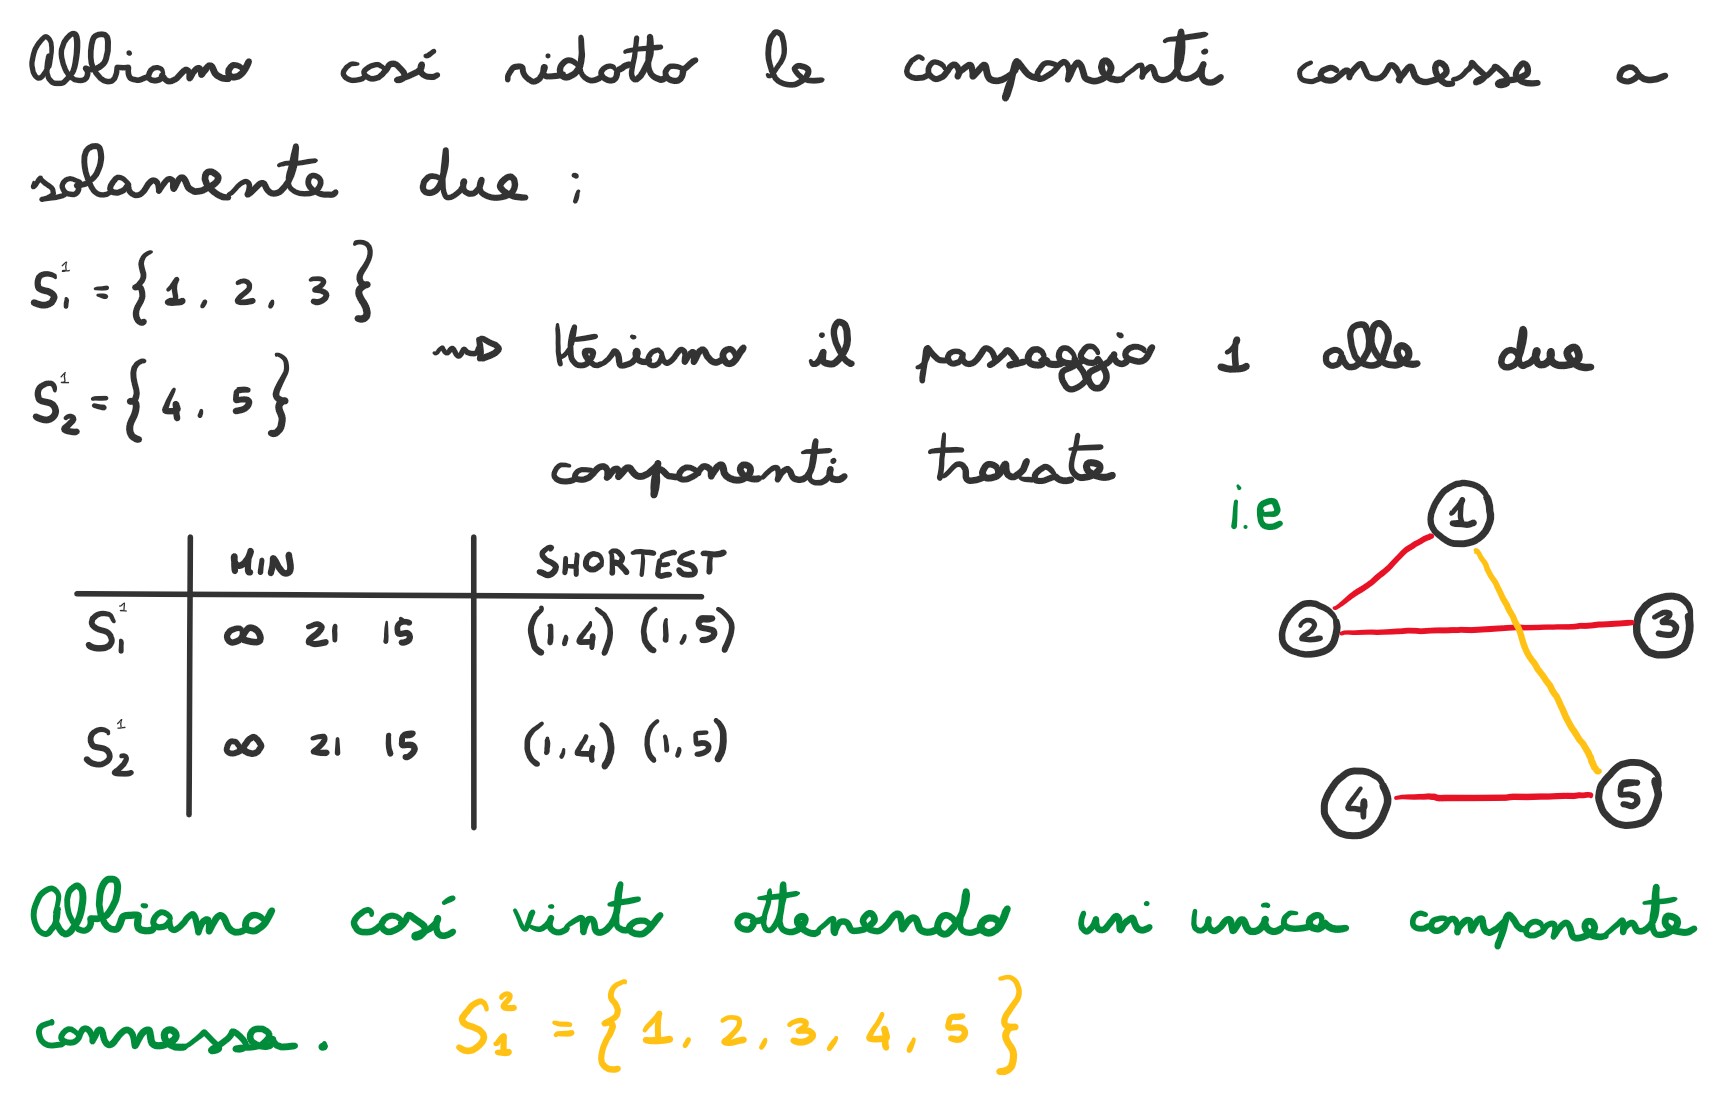 Abbiamo così ridotto le componenti connesse a
solamente due ;
S₁¹ = { 1, 2, 3 }
S₂¹ = { 4, 5 }
⇝ Iteriamo il passaggio 1 alle due
componenti trovate
MIN SHORTEST
S₁¹ ∞ 21 15 (1,4) (1,5)
S₂¹ ∞ 21 15 (1,4) (1,5)
i.e
1
2
3
4
5
Abbiamo così vinto ottenendo un unica componente
connessa. S₁² = { 1, 2, 3, 4, 5 }